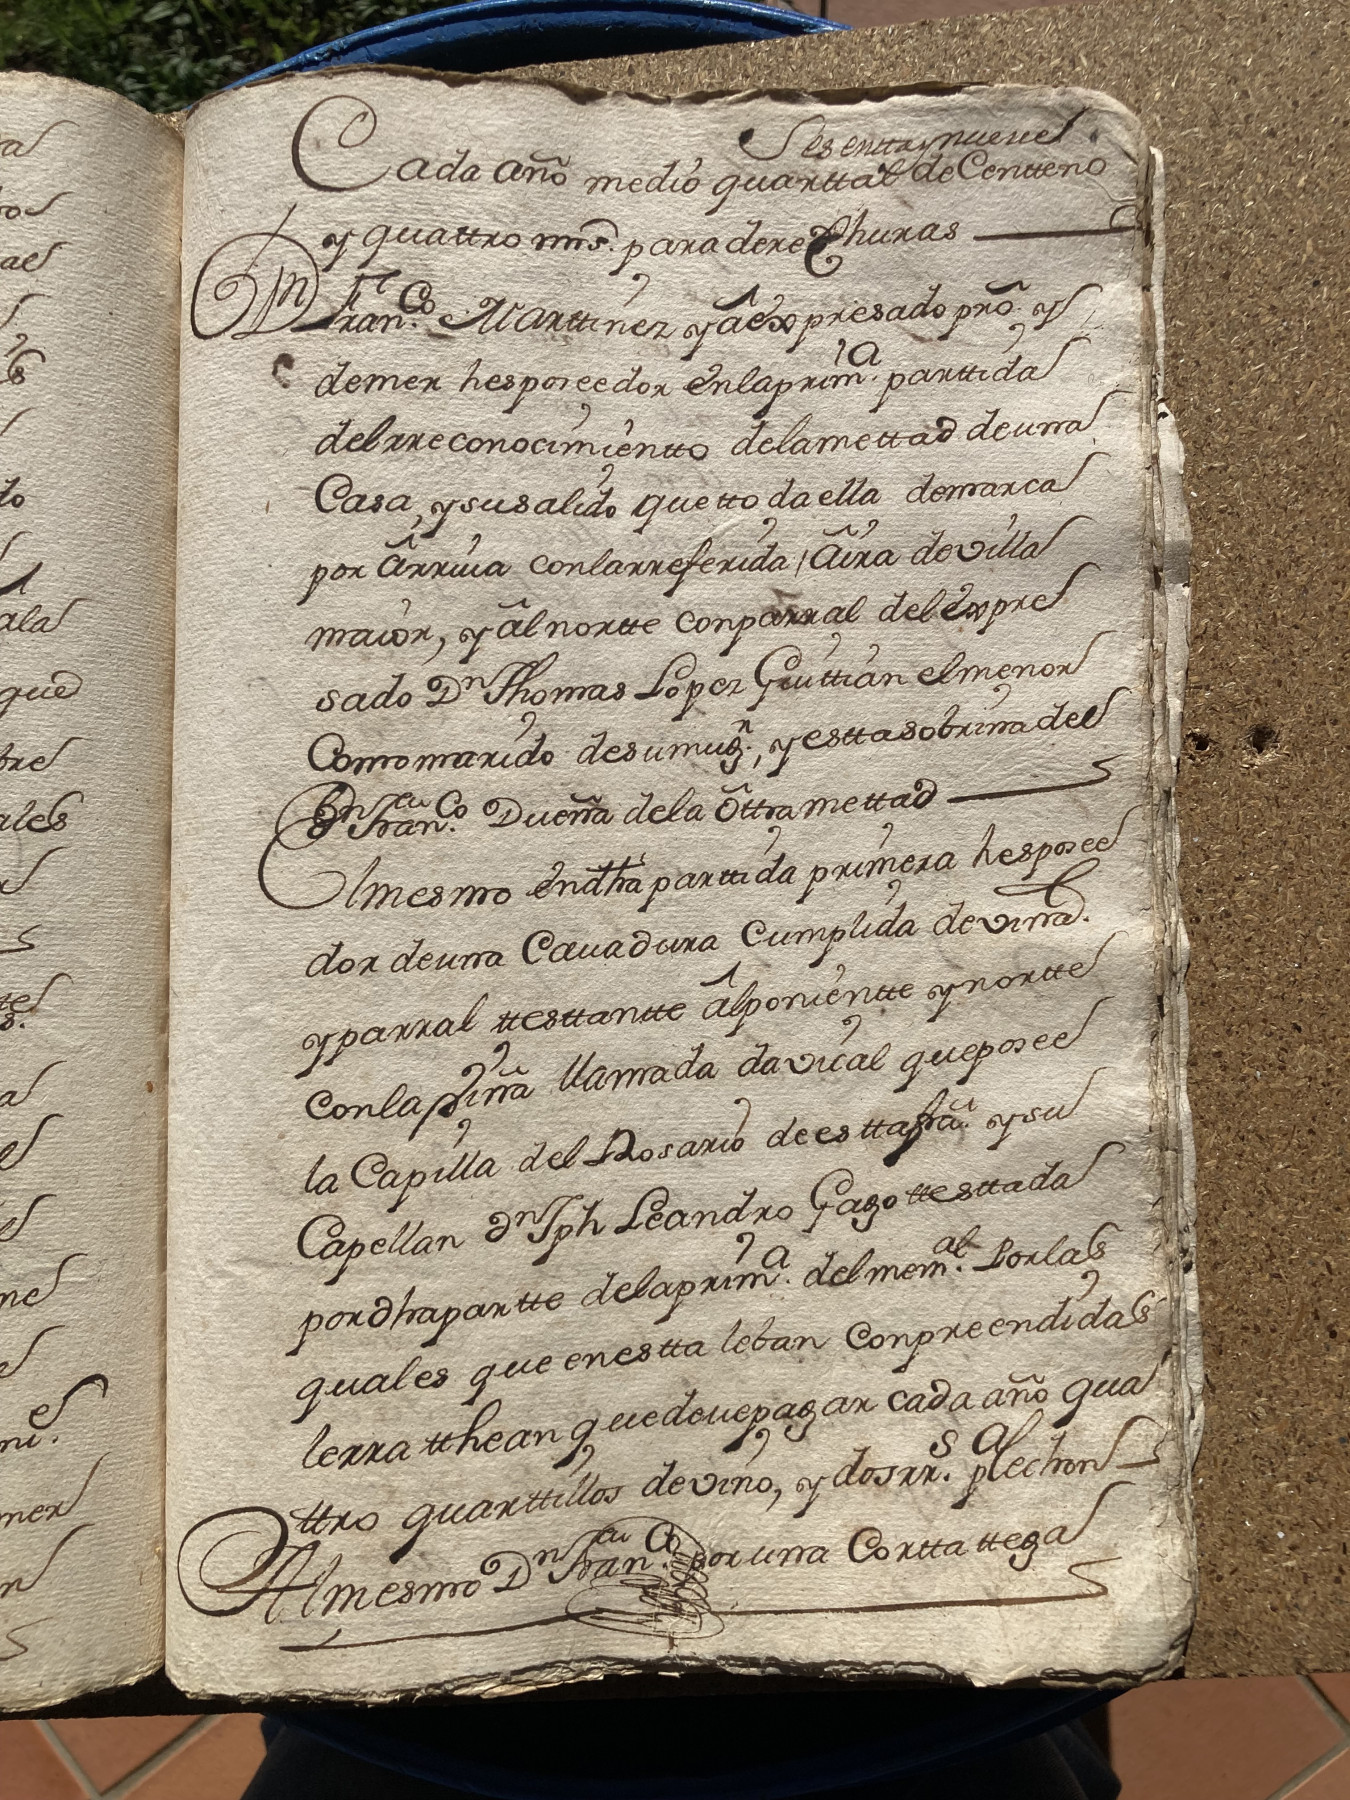 Sesentta y nueue
Cada año medio quarttal de Centteno
y quattro mrs. para derechuras
Dn Franco. Marttinez ya expresado pro. y
de mer hesposeedor en la prima. parttida
del rreconocimientto de la mettad de una
Casa, y su salido que toda ella demarca
por arriua con la rreferida aira de villa
maior, y al nortte con parral del expre
sado Dn Thomas Lopez Guittian el menor
Como marido de su mugr., y estta sobrina del
Dn Franco. Dueña de la ottra mettad
El mesmo en dha parttida primera hespose
dor de una Cauadura Cumplida de viña.
y parral ttesttantte al ponientte y nortte
con la viña llamada da vical que posee
la Capilla del Rosario de estta fra. y su
Capellan dn Jph Leandro Gago ttesttada
por dha partte de la prima. del memal. Por las
quales que en estta leban Conpreendidas
lerra tthean que deue pagar cada año qua
ttro quarttillos de vino, y dos rrs. pl lechon
Al mesmo Dn Franco. por una Cortta ttega